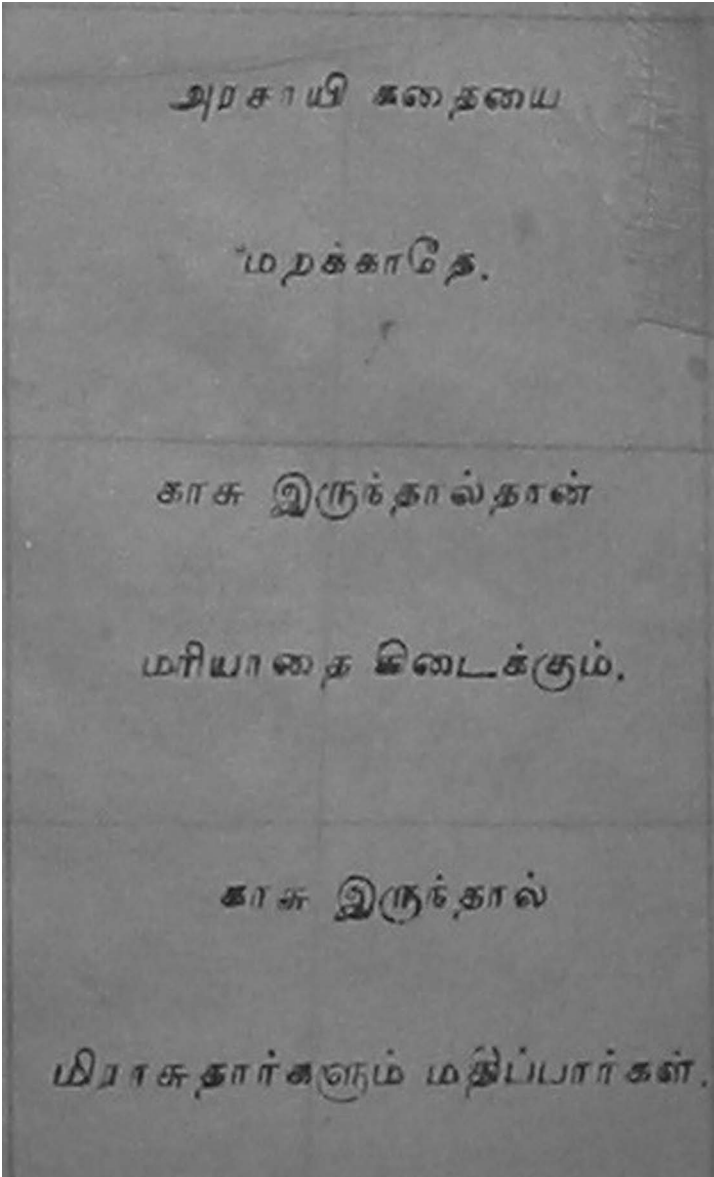 அரசாயி கதையை
மறக்காதே.
காசு இருந்தால்தான்
மரியாதை கிடைக்கும்.
காசு இருந்தால்
மிராசுதார்களும் மதிப்பார்கள்.